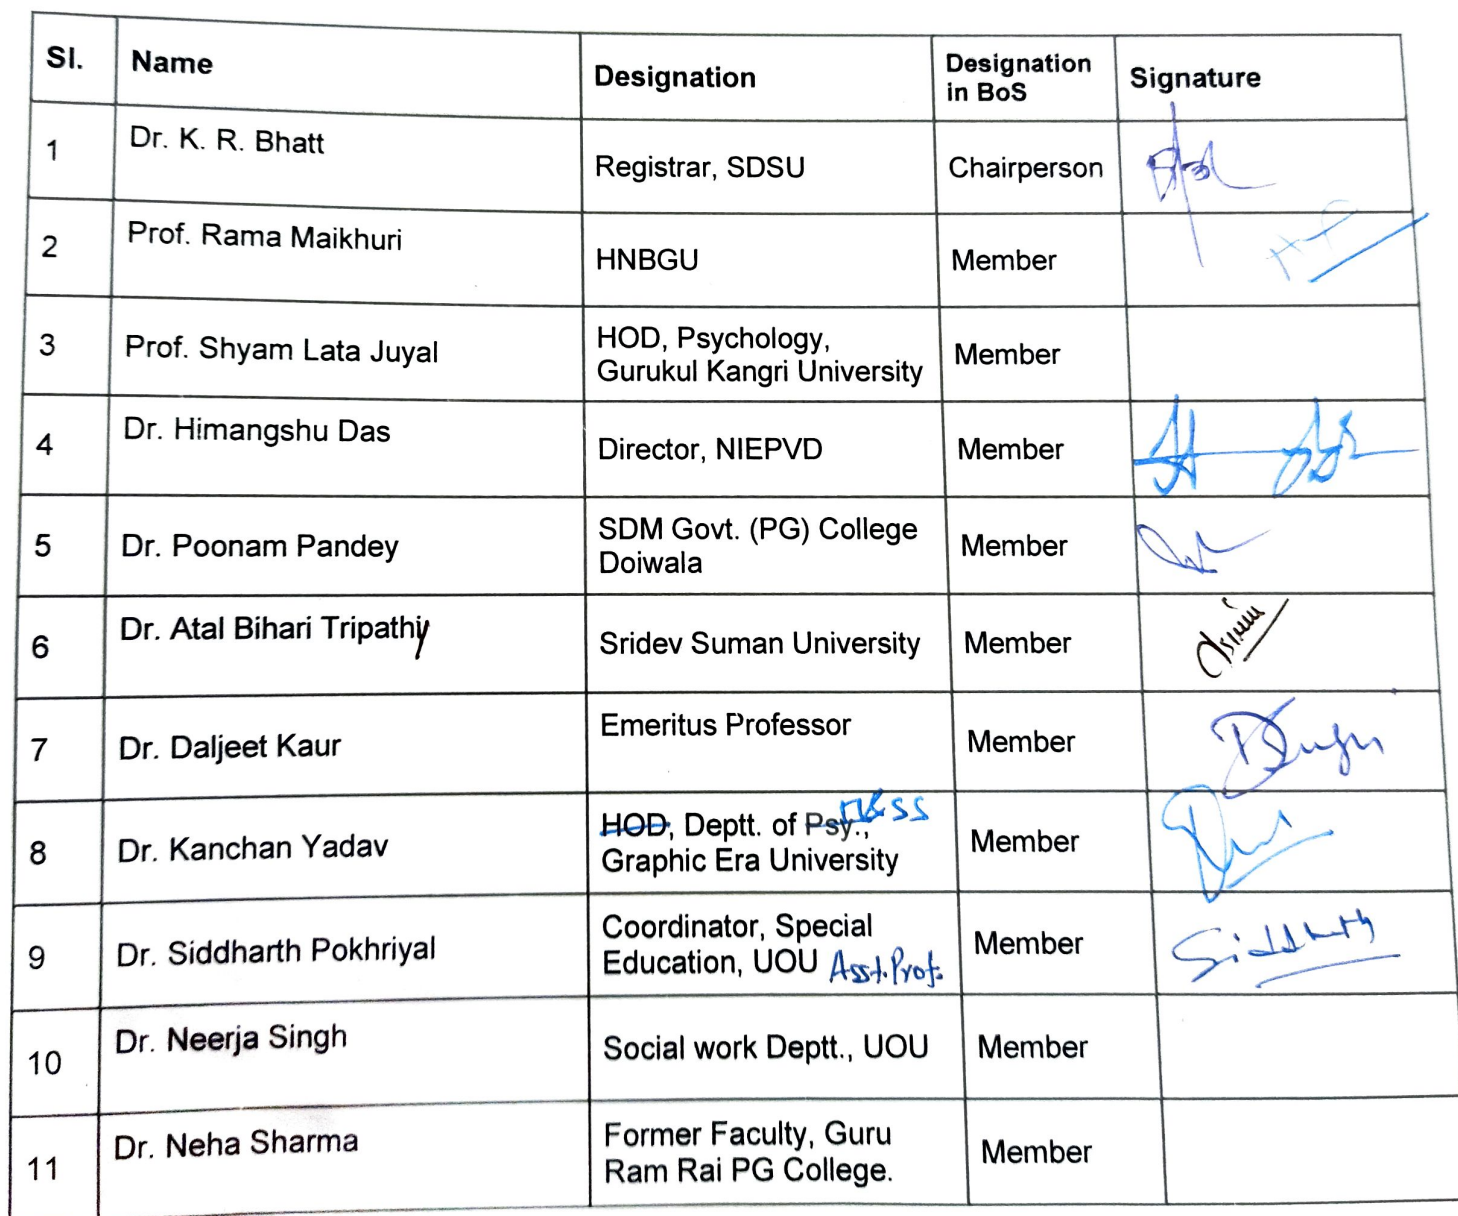 Sl. Name Designation Designation in BoS Signature
1 Dr. K. R. Bhatt Registrar, SDSU Chairperson
2 Prof. Rama Maikhuri HNBGU Member
3 Prof. Shyam Lata Juyal HOD, Psychology,
Gurukul Kangri University Member
4 Dr. Himangshu Das Director, NIEPVD Member
5 Dr. Poonam Pandey SDM Govt. (PG) College
Doiwala Member
6 Dr. Atal Bihari Tripathy Sridev Suman University Member
7 Dr. Daljeet Kaur Emeritus Professor Member
8 Dr. Kanchan Yadav HOD, Deptt. of Psy.,
Graphic Era University Member
9 Dr. Siddharth Pokhriyal Coordinator, Special
Education, UOU Asst. Prof. Member Siddharth
10 Dr. Neerja Singh Social work Deptt., UOU Member
11 Dr. Neha Sharma Former Faculty, Guru
Ram Rai PG College. Member